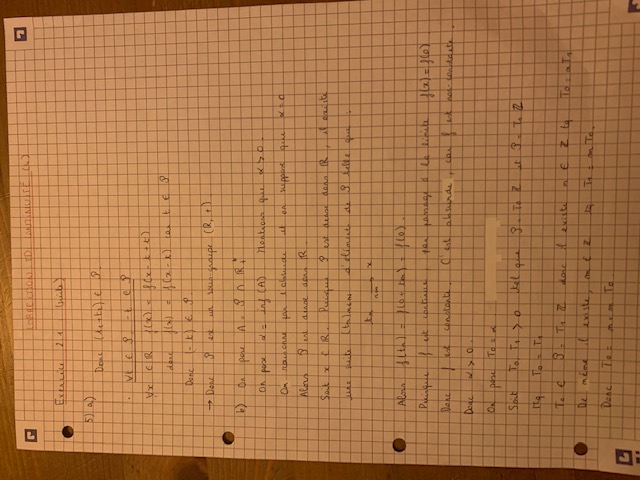 CORRECTION TD CONTINUITÉ (4)
Exercice 2.1 (suite)
5) a)
Donc (t₁+t₂) ∈ P.
. ∀t ∈ P, -t ∈ P
∀x ∈ ℝ f(x) = f(x-t+t)
donc f(x) = f(x-t) car t ∈ P
Donc (-t) ∈ P
→ Donc P est un sous-groupe (ℝ, +)
b) On pose A = P ∩ ℝ₊*
On pose α = inf(A) Montrons que α > 0.
On raisonne par l'absurde et on suppose que α = 0
Alors P est dense dans ℝ.
Soit x ∈ ℝ. Puisque P est dense dans ℝ, il existe
une suite (tn)n∈ℕ d'élément de P telle que :
tn → x
Alors f(tn) = f(0+tn) = f(0).
Puisque f est continue, par passage à la limite f(x) = f(0)
Donc f est constante. C'est absurde, car f est non-constante.
Donc α > 0.
On pose T₀ = α
Soit T₀, T₁ > 0 tel que P = T₀ℤ et P = T₁ℤ
Mq T₀ = T₁
T₀ ∈ P = T₁ℤ donc il existe n ∈ ℤ tq T₀ = nT₁
De même il existe, m ∈ ℤ tq T₁ = mT₀.
Donc T₀ = n×m T₀